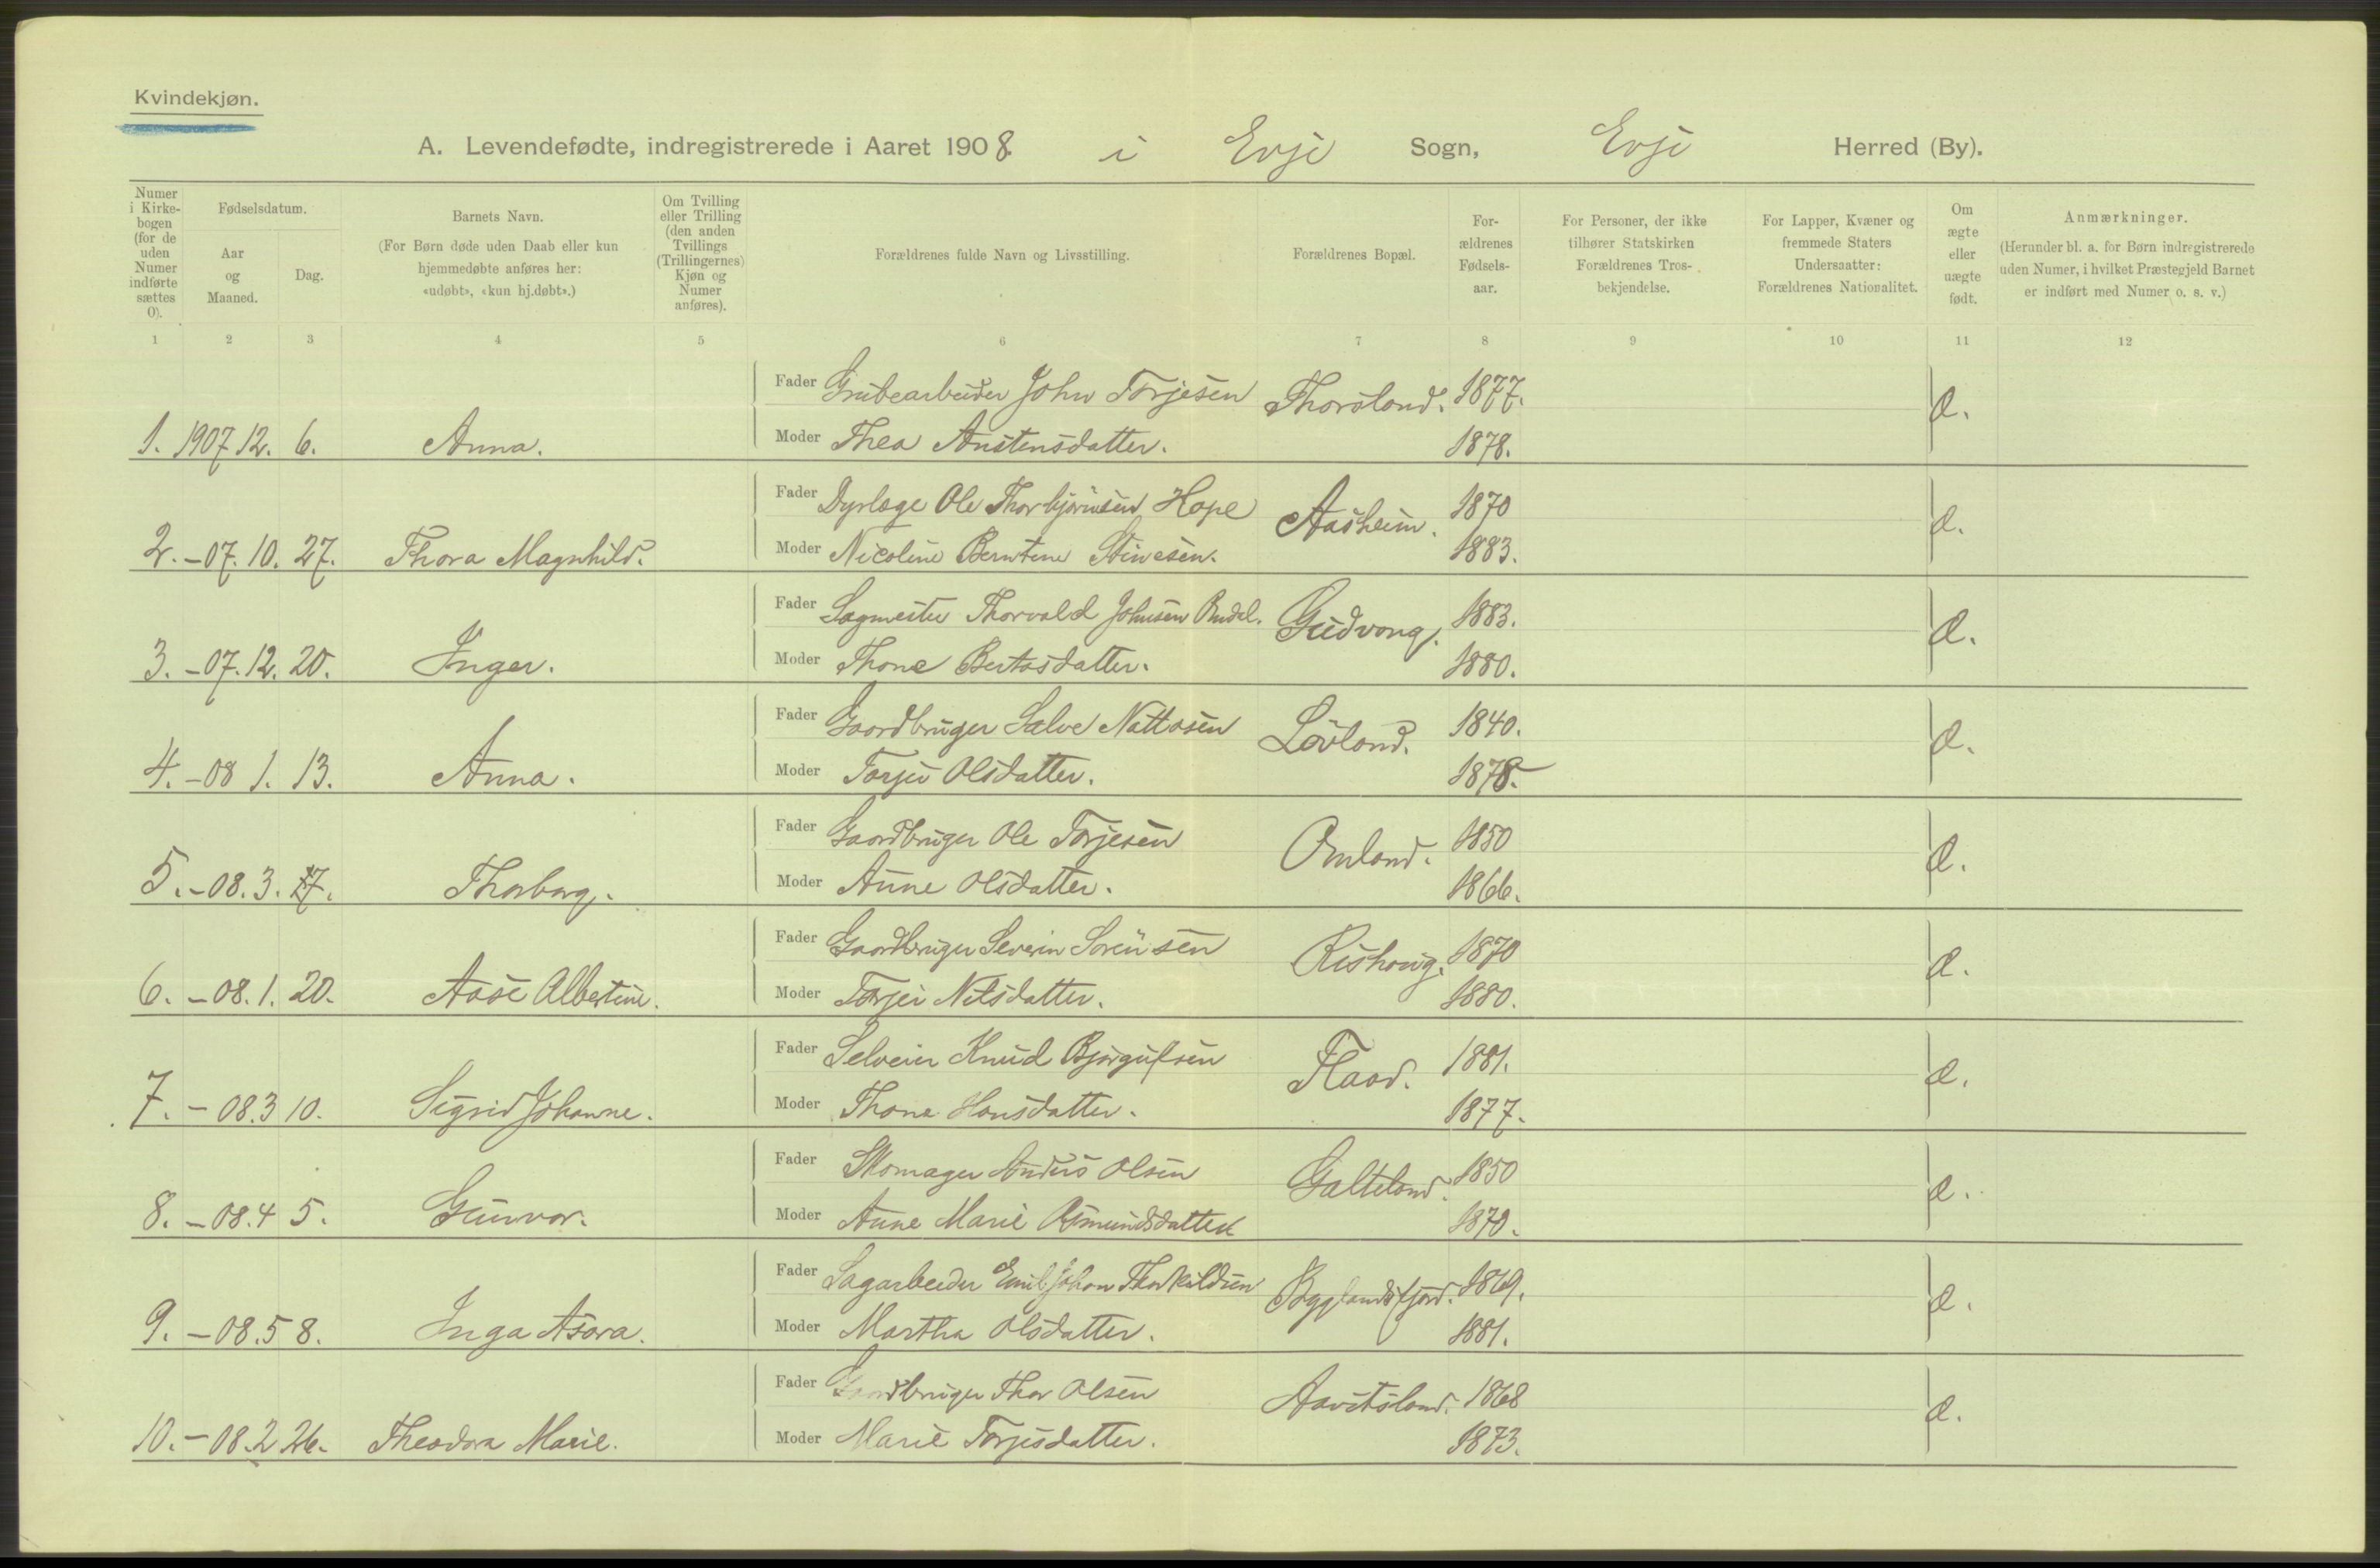 Kvindekjøn.
A. Levendefødte, indregistrerede i Aaret 1908. i Evje Sogn, Evje Herred (By).
Numer i Kirke-bogen (for de uden Numer indførte sættes 0).
Fødselsdatum.
Aar og Maaned.
Dag.
Barnets Navn.
(For Børn døde uden Daab eller kun hjemmedøbte anføres her: «udøbt», «kun hj.døbt».)
Om Tvilling eller Trilling (den anden Tvillings (Trillingernes) Kjøn og Numer anføres).
Forældrenes fulde Navn og Livsstilling.
Forældrenes Bopæl.
For-ældrenes Fødsels-aar.
For Personer, der ikke tilhører Statskirken Forældrenes Tros-bekjendelse.
For Lapper, Kvæner og fremmede Staters Undersaatter: Forældrenes Nationalitet.
Om ægte eller uægte født.
Anmærkninger.
(Herunder bl. a. for Børn indregistrerede uden Numer, i hvilket Præstegjeld Barnet er indført med Numer o. s. v.)
1 2 3 4 5 6 7 8 9 10 11 12
Fader Grubearbeider John Torjesen Thorsland. 1877. æ.
1. 1907 12. 6. Anna. Moder Thea Anstensdatter. 1878.
Fader Dyrlæge Ole Thorbjørnsen Hope Aasheim. 1870 æ.
2. -07. 10. 27. Thora Magnhild. Moder Nicoline Berntine Stinesen. 1883.
Fader Sagmester Thorvald Johnsen Gudvang. 1883. æ.
3. -07. 12. 20. Inger. Moder Thone Bertosdatter. 1880.
Fader Gaardbruger Salve Nattosen Løvland. 1840. æ.
4. -08 1. 13. Anna. Moder Torjer Olsdatter. 1878.
Fader Gaardbruger Ole Torjesen Omland. 1850 æ.
5. -08. 3. 17. Thorborg. Moder Anne Olsdatter. 1866.
Fader Gaardbruger Severin Sørensen Rishoug. 1870 æ.
6. -08. 1. 20. Aase Albertine. Moder Torjer Nilsdatter. 1880.
Fader Selveier Knud Bjørgufsen Flaad. 1881. æ.
7. -08. 3 10. Sigrid Johanne. Moder Thone Hansdatter. 1877.
Fader Skomager Anders Olsen Galteland. 1850 æ.
8. -08. 4 5. Gunvor. Moder Anne Marie Osmundsdatter 1870.
Fader Sagarbeider Emil Johan Thorkildsen Byglandsfjord. 1869. æ.
9. -08. 5 8. Inga Asora. Moder Martha Olsdatter. 1881.
Fader Gaardbruger Thor Olsen Aavitsland. 1868 æ.
10. -08. 2 26. Theodora Marie. Moder Marie Torjesdatter. 1873.